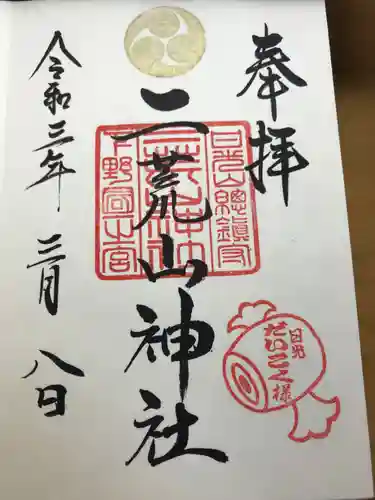 奉拝
二荒山神社
日光山總鎮守
二荒山神社
下野國一宮
日光
だいこく様
令和三年 三月 八日